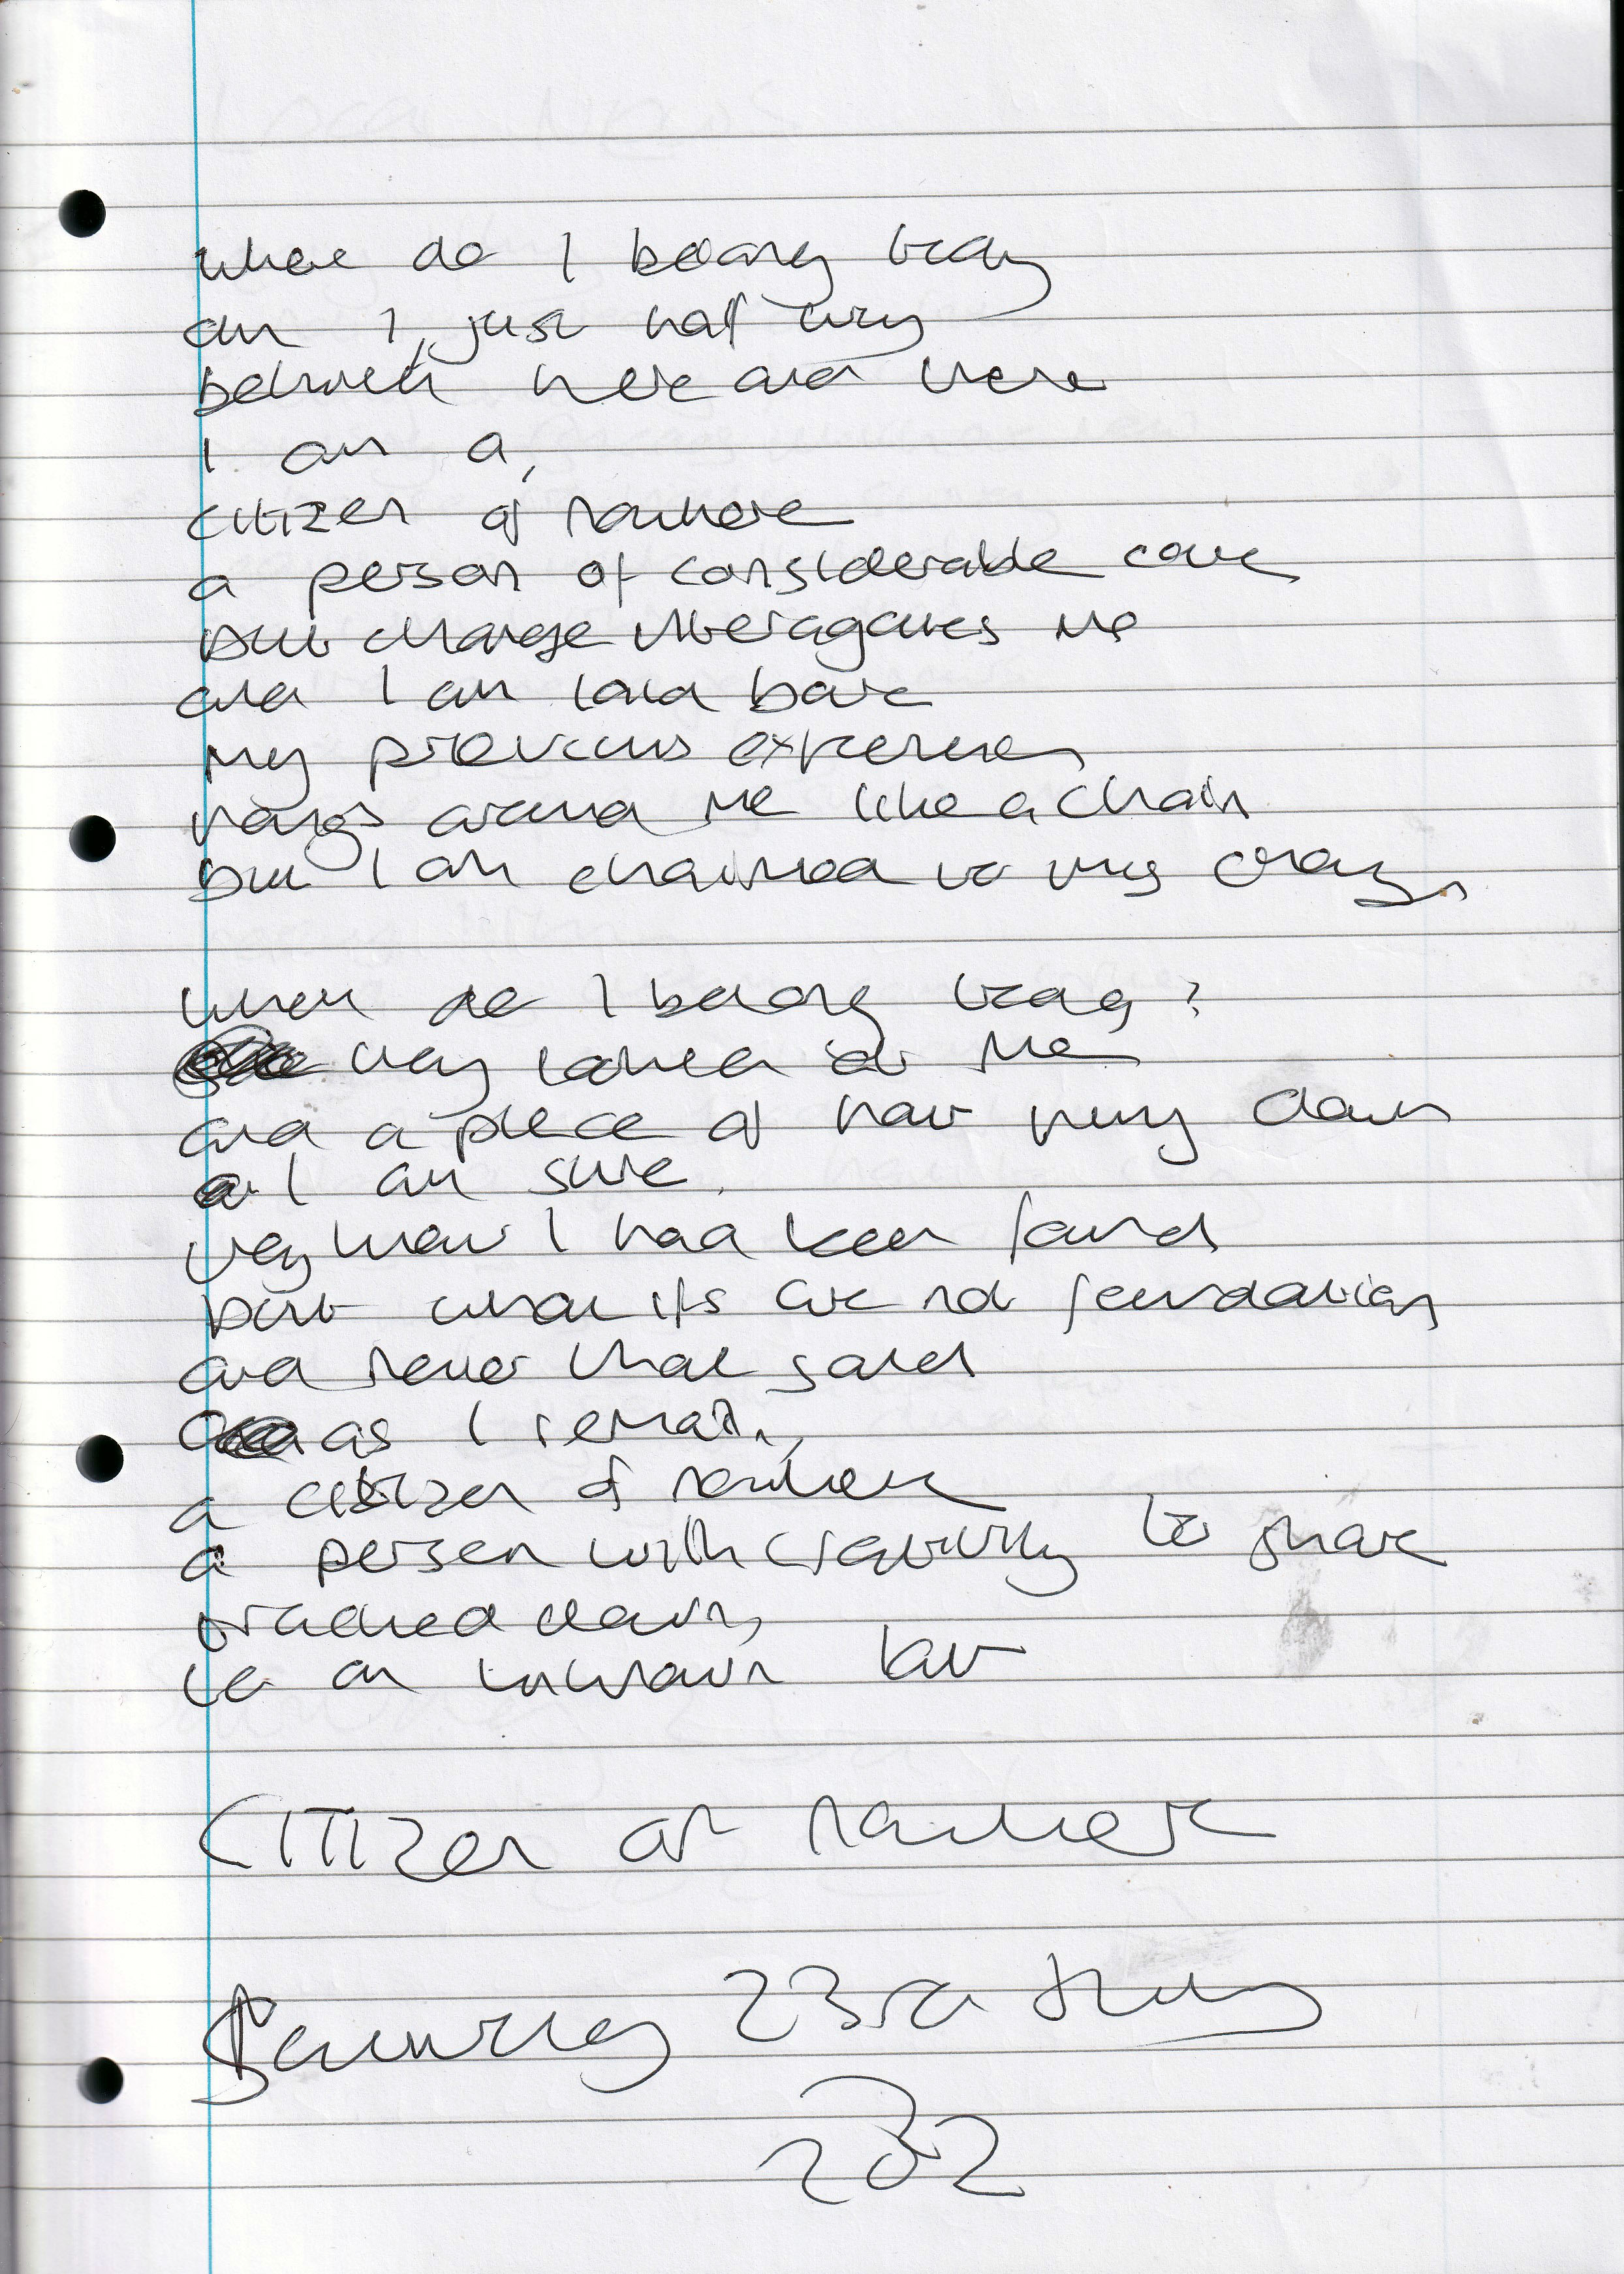 where do I belong today
am I, just half way
between here and there
I am a,
citizen of nowhere
a person of considerable care
but change interrogates me
and I am laid bare
my previous experiences
hangs around me like a chain
but I am chained to this
when do I belong today?
they looked at me
and a piece of how they
I am sure.
they knew I had been found
but what ifs are not foundations
and never that solid
as I remain,
a citizen of nowhere
a person with creativity to share
tracked down,
to an unknown
CITIZEN of nowhere
23rd